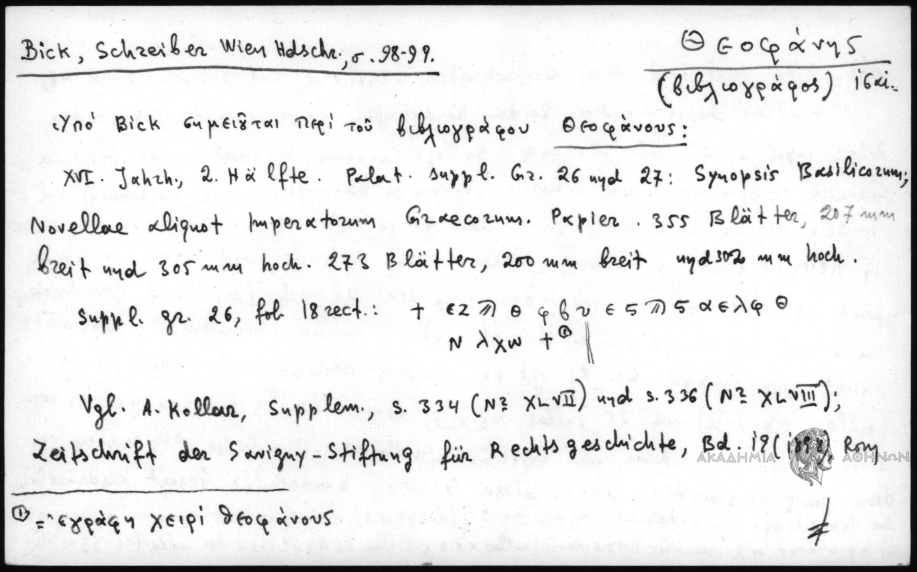 Bick, Schreiber Wien Hdschr., σ. 98-99.
Θεοφάνης
(βιβλιογράφος) ις΄αἰ.
Ὑπό Bick σημειοῦται περί τοῦ βιβλιογράφου Θεοφάνους:
XVI. Jahrh., 2. Hälfte. Palat. suppl. Gr. 26 und 27: Synopsis Basilicorum;
Novellae aliquot Imperatorum Graecorum. Papier. 355 Blätter, 207 mm
breit und 305 mm hoch. 273 Blätter, 200 mm breit und mm hoch.
Suppl. gr. 26, fol. 18 rect.: +
Ν λχω + ①
Vgl. A. Kollar, Supplem., S. 334 (Nº XLVII) und S. 336 (Nº XLVIII);
Zeitschrift der Savigny-Stiftung für Rechtsgeschichte, Bd. 19 Rom
ΑΚΑΔΗΜΙΑ ΑΘΗΝΩΝ
① = ἐγράφη χειρί θεοφάνους